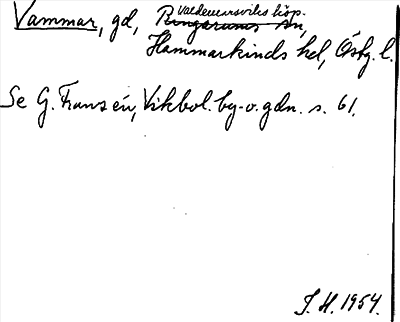 Vammar, gd, Valdemarsviks köp.
Ringarums sn,
Hammarkinds hd, Östg. l.
Se G. Franzén, Vikbol. by- o. gdn. s. 61.
J. H. 1954.